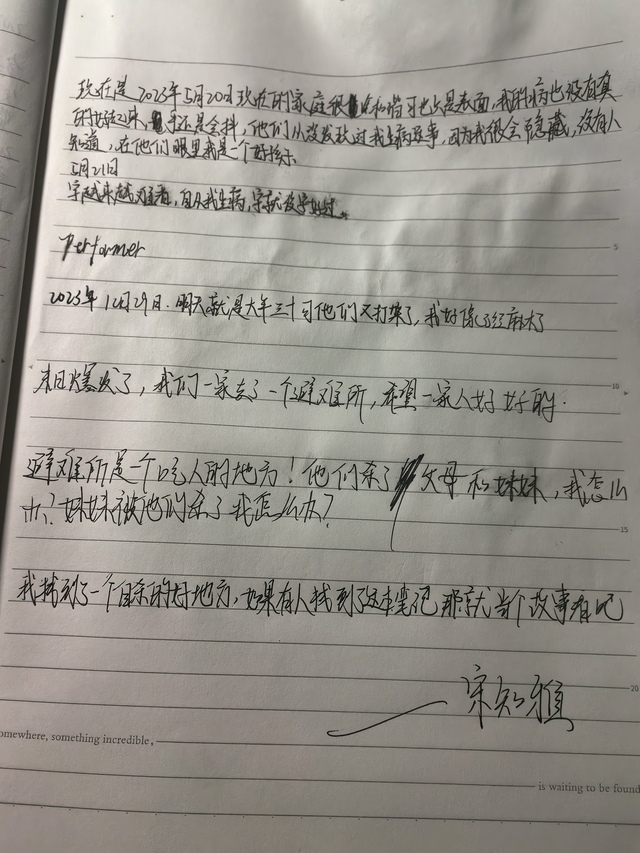 现在是2023年5月20日现在的家庭很和谐可也只是表面,我的病也没有真
的好起来,还是会抖,他们从没发现过我生病这事,因为我很会隐藏,没有人
知道,在他们眼里我是一个好孩子.
5月21日
字越来越难看,自从我生病,字就没好过.
Performer
2023年12月29日.明天就是大年三十可他们又打架了,我好像已经麻木了
末日爆发了,我们一家去了一个避难所,希望一家人好好的.
避难所是一个吃人的地方!他们杀了父母和妹妹,我怎么
办?妹妹被他们杀了我怎么办?
我找到了一个自杀的好地方,如果有人找到了这本笔记那就当个故事看吧
宋知雅
omewhere, something incredible,
is waiting to be found
5
10
15
20